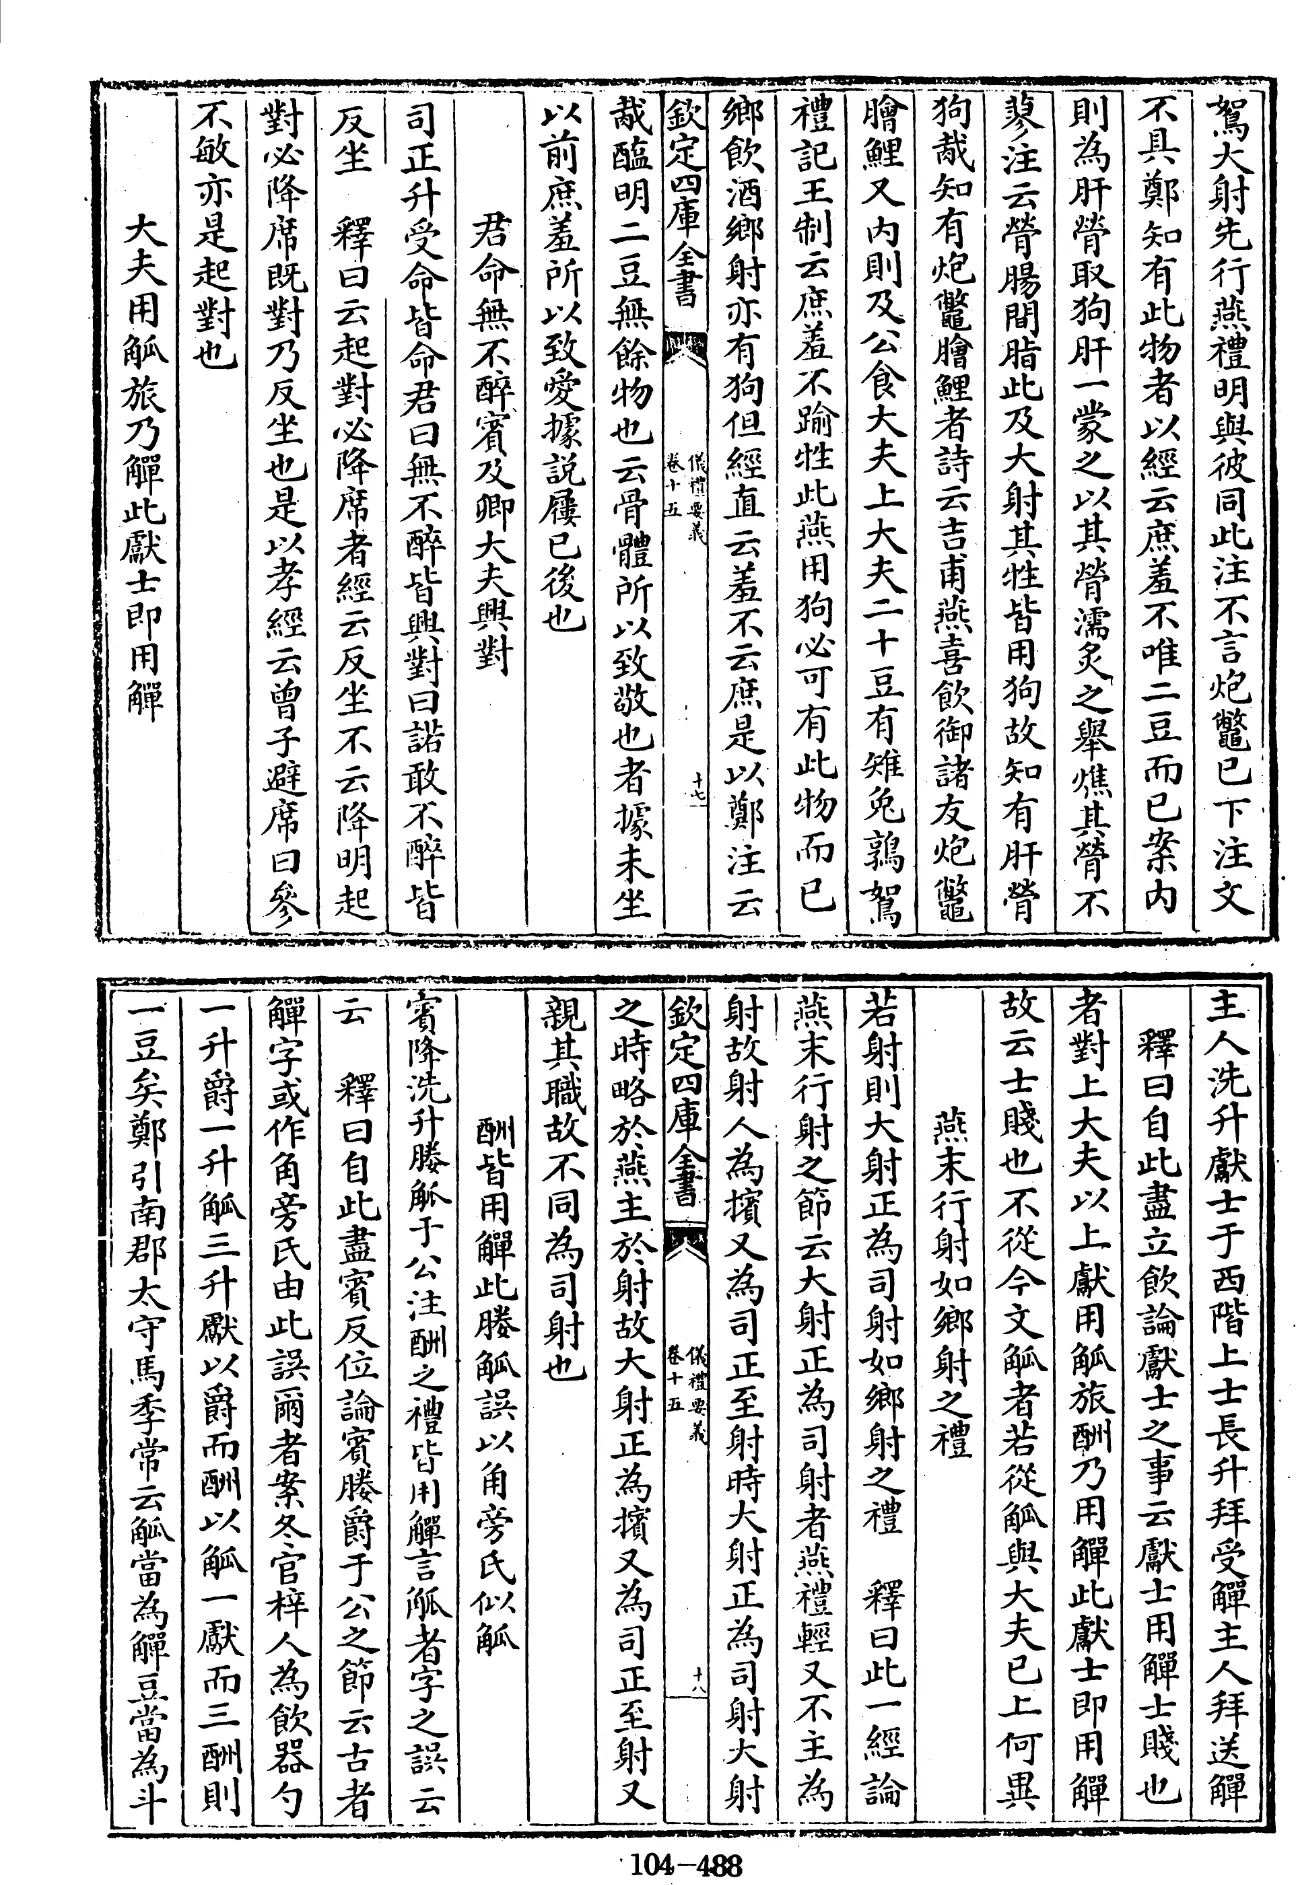 鴽大射先行燕禮明與彼同此注不言炮鼈已下注文
不具鄭知有此物者以經云庶羞不唯二豆而已案内
則為肝膋取狗肝一蒙之以其膋濡炙之舉燋其膋不
蓼注云膋腸間脂此及大射其牲皆用狗故知有肝膋
狗胾知有炮鼈膾鯉者詩云吉甫燕喜飲御諸友炮鼈
膾鯉又内則及公食大夫上大夫二十豆有雉兔鶉鴽
禮記王制云庶羞不踰牲此燕用狗必可有此物而已
鄉飲酒鄉射亦有狗但經直云羞不云庶是以鄭注云
欽定四庫全書 儀禮要義 卷十五 十七
胾醢明二豆無餘物也云骨體所以致敬也者據未坐
以前庶羞所以致愛據説屨已後也
君命無不醉賓及卿大夫興對
司正升受命皆命君曰無不醉皆興對曰諾敢不醉皆
反坐 釋曰云起對必降席者經云反坐不云降明起
對必降席既對乃反坐也是以孝經云曾子避席曰參
不敏亦是起對也
大夫用觚旅乃觶此獻士即用觶
主人洗升獻士于西階上士長升拜受觶主人拜送觶
釋曰自此盡立飲論獻士之事云獻士用觶士賤也
者對上大夫以上獻用觚旅酬乃用觶此獻士即用觶
故云士賤也不從今文觚者若從觚與大夫已上何異
燕末行射如鄉射之禮
若射則大射正為司射如鄉射之禮 釋曰此一經論
燕末行射之節云大射正為司射者燕禮輕又不主為
射故射人為擯又為司正至射時大射正為司射大射
欽定四庫全書 儀禮要義 卷十五 十八
之時略於燕主於射故大射正為擯又為司正至射又
親其職故不同為司射也
酬皆用觶此媵觚誤以角旁氏似觚
賓降洗升媵觚于公注酬之禮皆用觶言觚者字之誤云
云 釋曰自此盡賓反位論賓媵爵于公之節云古者
觶字或作角旁氏由此誤爾者案冬官梓人為飲器勺
一升爵一升觚三升獻以爵而酬以觚一獻而三酬則
一豆矣鄭引南郡太守馬季常云觚當為觶豆當為斗
104-488